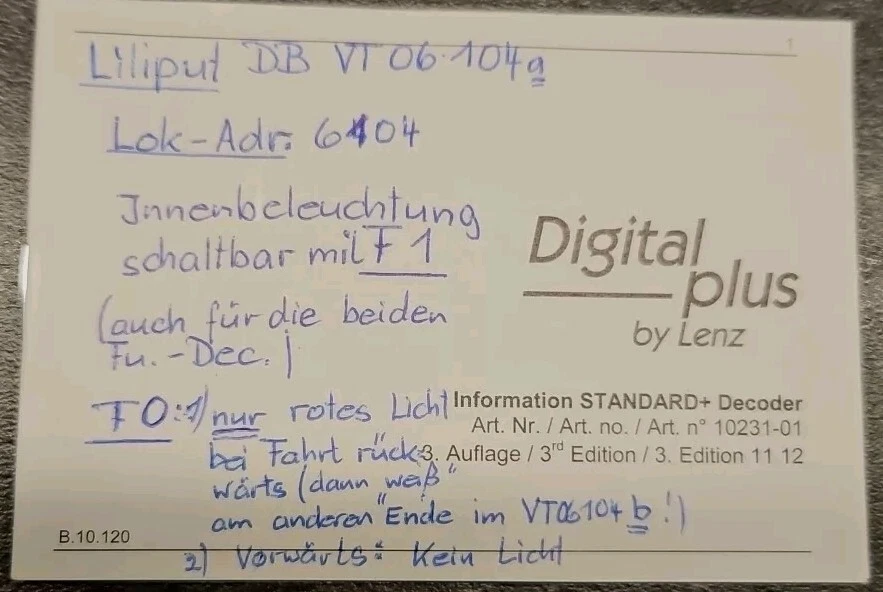 1
Liliput DB VT 06.104a
Lok-Adr. 6104
Innenbeleuchtung
schaltbar mit F1
(auch für die beiden
Fu.-Dec.)
F0: 1) nur rotes Licht
bei Fahrt rück-
wärts (dann weiß
am anderen "Ende" im VT06104b!)
2) Vorwärts: Kein Licht
Digital
plus
by Lenz
Information STANDARD+ Decoder
Art. Nr. / Art. no. / Art. n° 10231-01
3. Auflage / 3rd Edition / 3. Edition 11 12
B.10.120